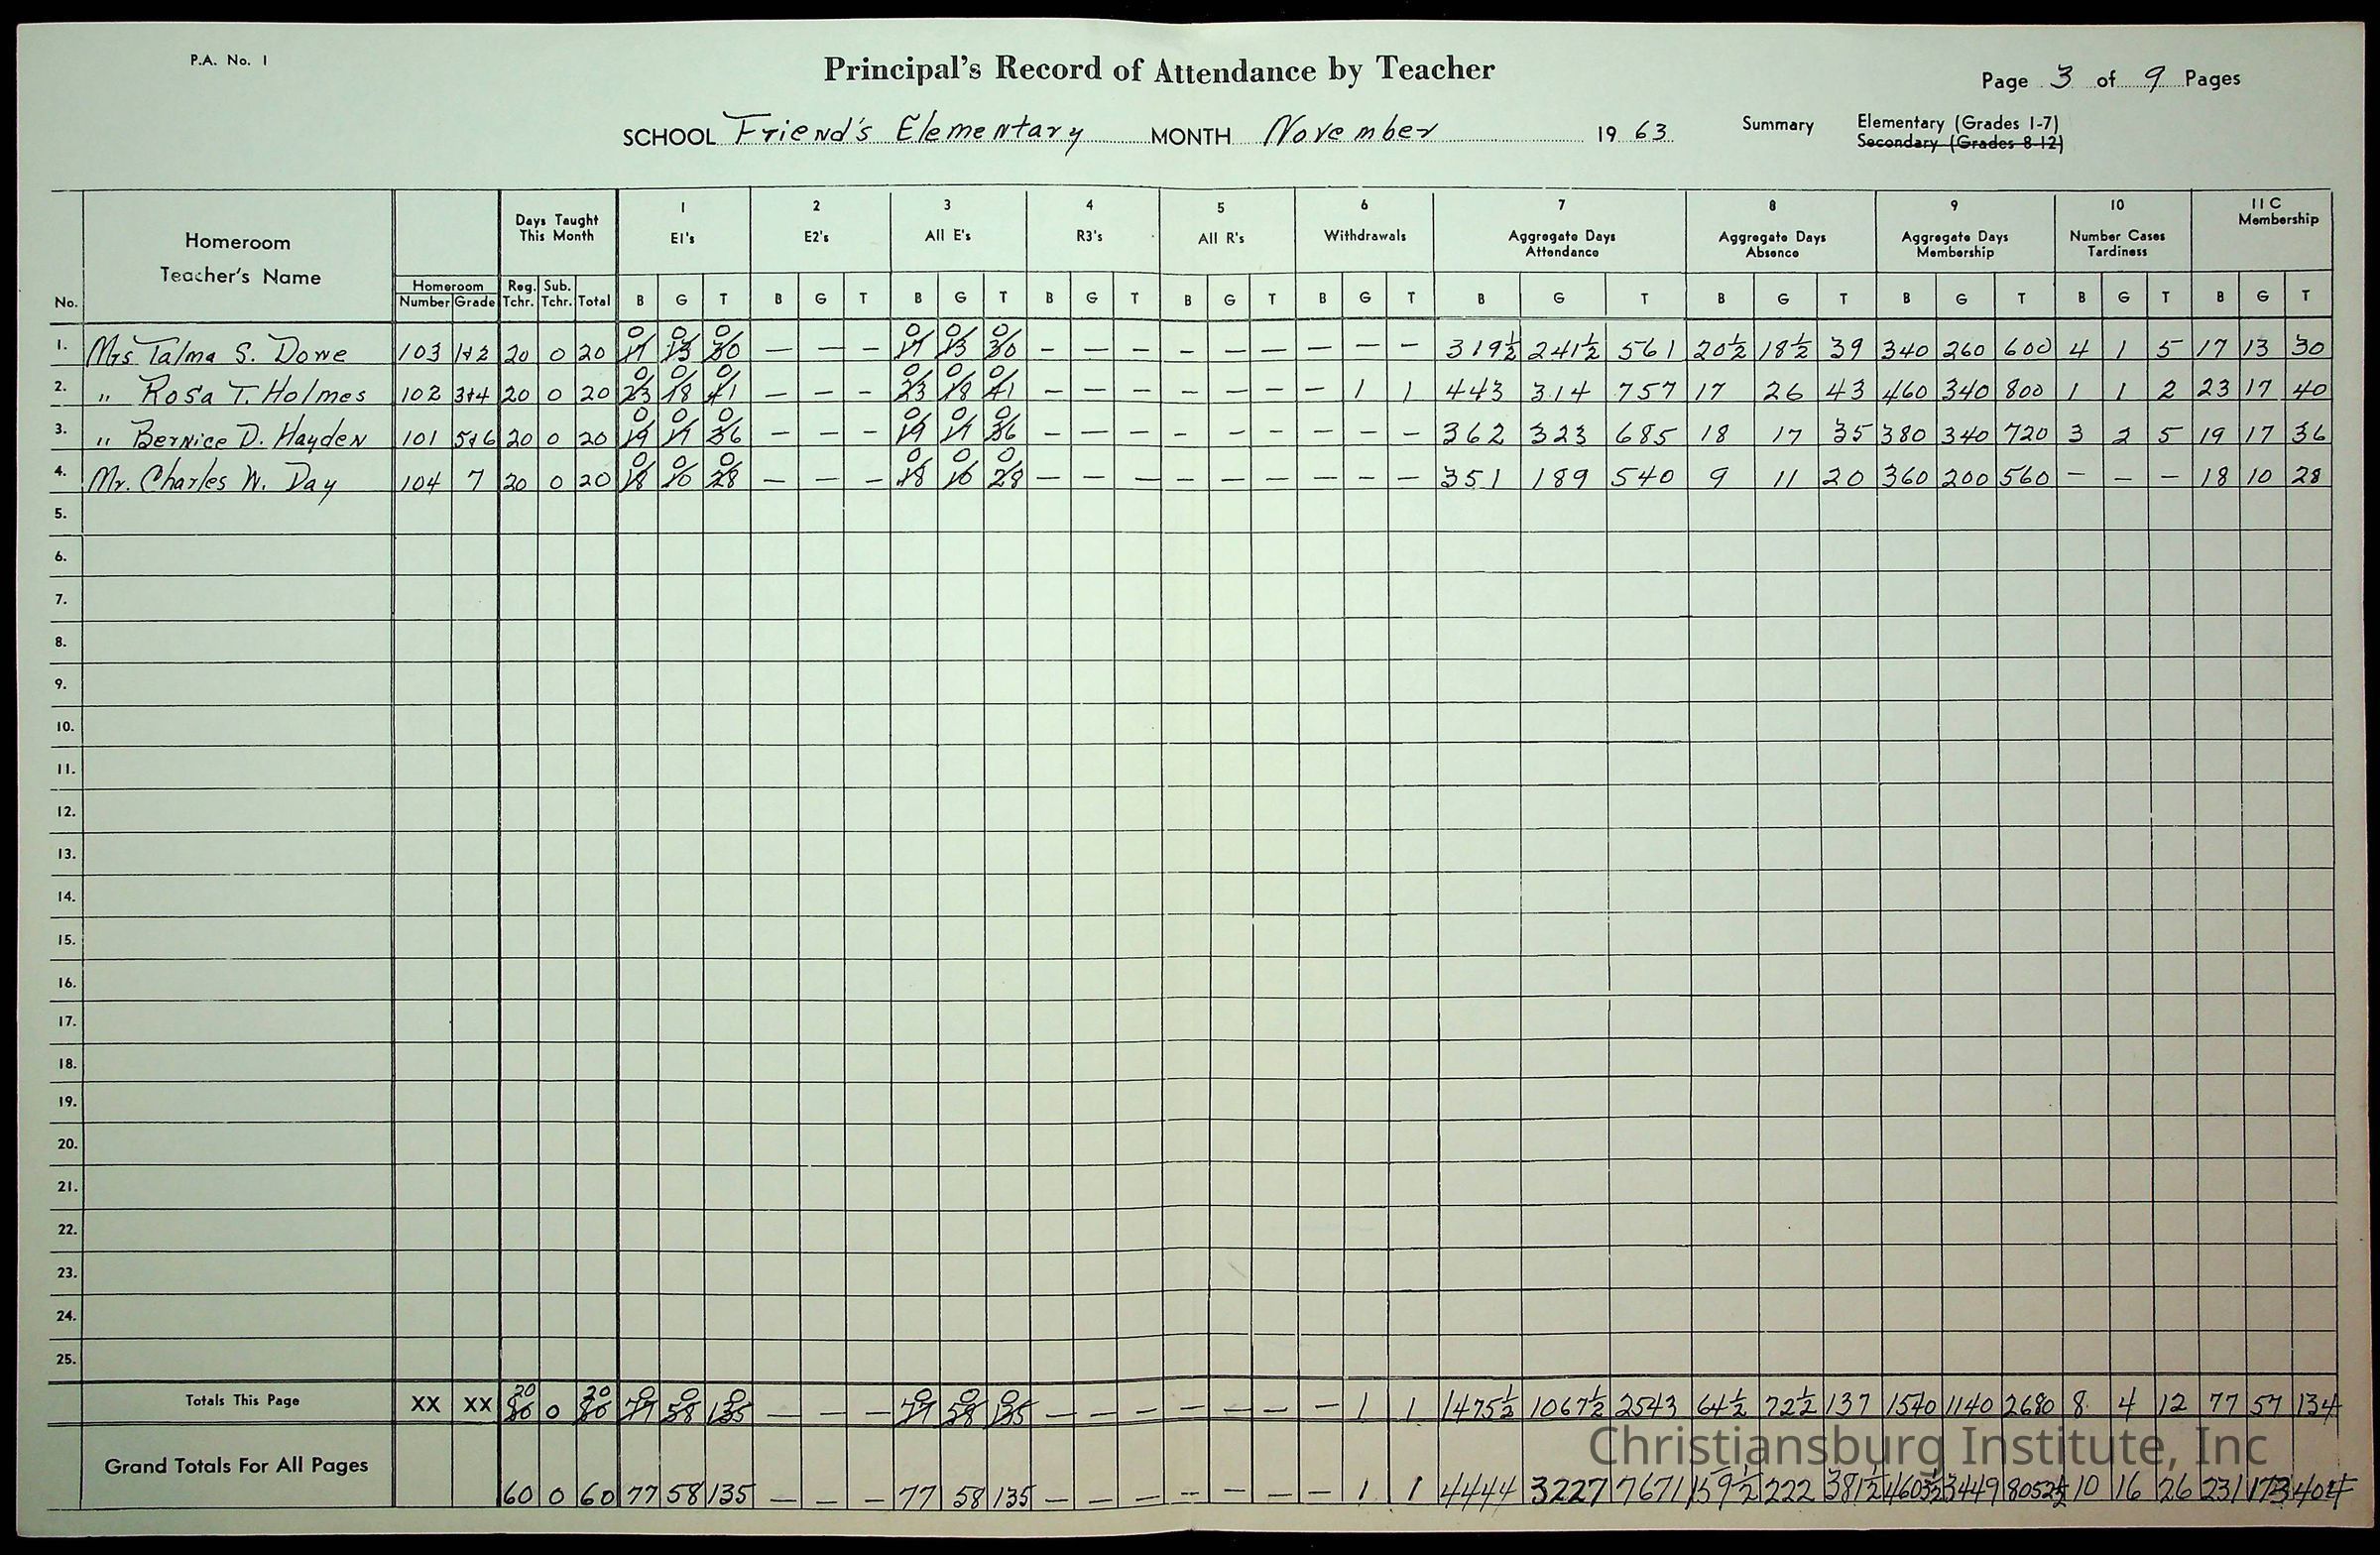 P.A. No. 1
Principal's Record of Attendance by Teacher
Page 3 of 9 Pages
SCHOOL Friend's Elementary MONTH November 1963 Summary Elementary (Grades 1-7)
Secondary (Grades 8-12)
1 2 3 4 5 6 7 8 9 10 11 C
Days Taught This Month E1's E2's All E's R3's All R's Withdrawals Aggregate Days Attendance Aggregate Days Absence Aggregate Days Membership Number Cases Tardiness Membership
No. Homeroom Teacher's Name Homeroom Number Grade Reg. Tchr. Sub. Tchr. Total B G T B G T B G T B G T B G T B G T B G T B G T B G T B G T B G T
1. Mrs. Talma S. Dowe 103 1+2 20 0 20 0 0 0 — — — 0 0 0 — — — — — — — — — 319½ 241½ 561 20½ 18½ 39 340 260 600 4 1 5 17 13 30
17 13 30 17 13 30
2. " Rosa T. Holmes 102 3+4 20 0 20 0 0 0 — — — 0 0 0 — — — — — — — 1 1 443 314 757 17 26 43 460 340 800 1 1 2 23 17 40
23 18 41 23 18 41
3. " Bernice D. Hayden 101 5+6 20 0 20 0 0 0 — — — 0 0 0 — — — — — — — — — 362 323 685 18 17 35 380 340 720 3 2 5 19 17 36
19 17 36 19 17 36
4. Mr. Charles W. Day 104 7 20 0 20 0 0 0 — — — 0 0 0 — — — — — — — — — 351 189 540 9 11 20 360 200 560 — — — 18 10 28
18 10 28 18 10 28
5.
6.
7.
8.
9.
10.
11.
12.
13.
14.
15.
16.
17.
18.
19.
20.
21.
22.
23.
24.
25.
20 20 0 0 0 0 0 0
Totals This Page XX XX 80 0 80 77 58 135 — — — 77 58 135 — — — — — — — 1 1 1475½ 1067½ 2543 64½ 72½ 137 1540 1140 2680 8 4 12 77 57 134
Grand Totals For All Pages 60 0 60 77 58 135 — — — 77 58 135 — — — — — — — 1 1 4444 3227 7671 159½ 222 381½ 4603½ 3449 8052½ 10 16 26 231 173 404
Christiansburg Institute, Inc